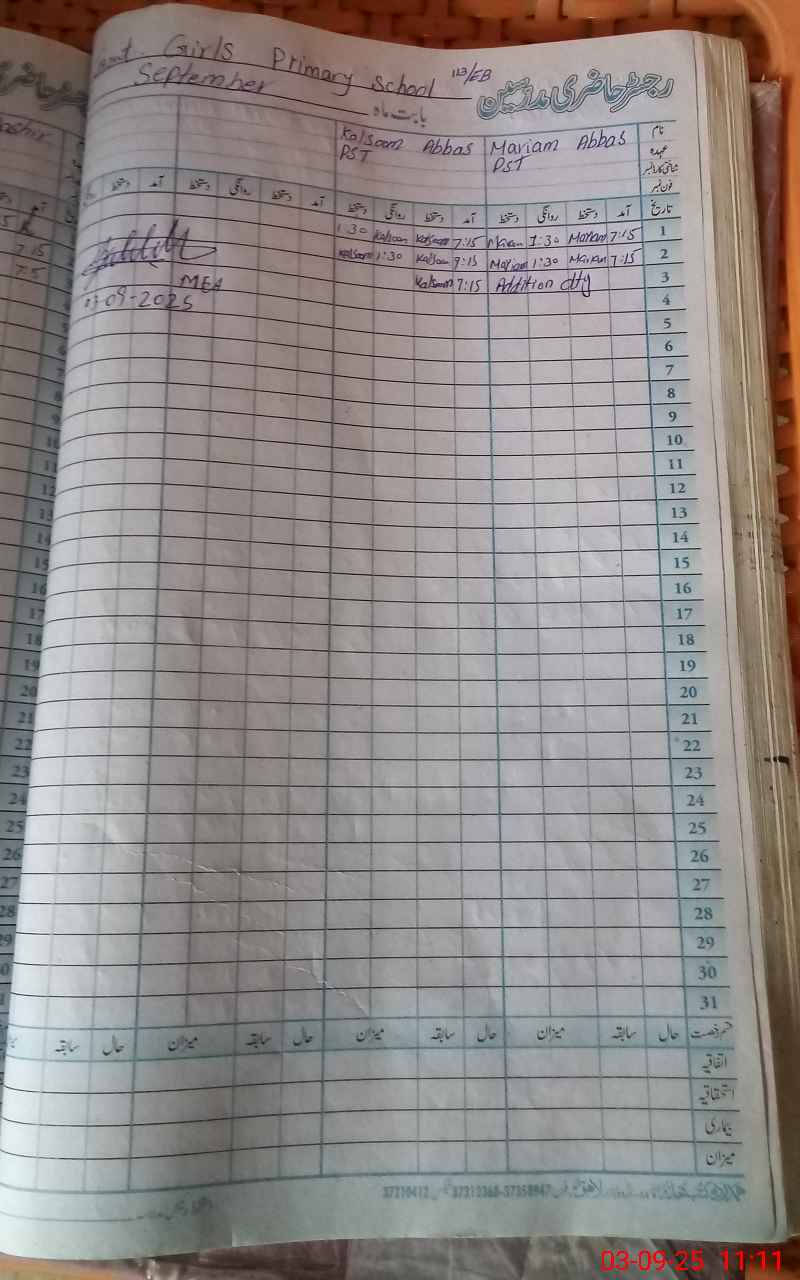 Govt. Girls Primary School 113/EB
رجسٹر حاضری مدرسین
September
بابت ماہ
Kalsoom Abbas Mariam Abbas نام
PST PST عہدہ
شناختی کارڈ نمبر
فون نمبر
دستخط آمد دستخط روانگی دستخط آمد دستخط روانگی دستخط آمد دستخط روانگی دستخط آمد تاریخ
1:30 Kalsoom Kalsoom 7:15 Mariam 1:30 Mariam 7:15 1
Kalsoom 1:30 Kalsoom 7:15 Mariam 1:30 Mariam 7:15 2
Kalsoom 7:15 Addition dty 3
MEA
03-09-2025
4
5
6
7
8
9
10
11
12
13
14
15
16
17
18
19
20
21
22
23
24
25
26
27
28
29
30
31
سابقہ حال میزان سابقہ حال میزان سابقہ حال میزان سابقہ حال قسم رخصت
اتفاقیہ
استحقاقیہ
بیماری
میزان
37210412 37313368-37358947
03-09-25 11:11